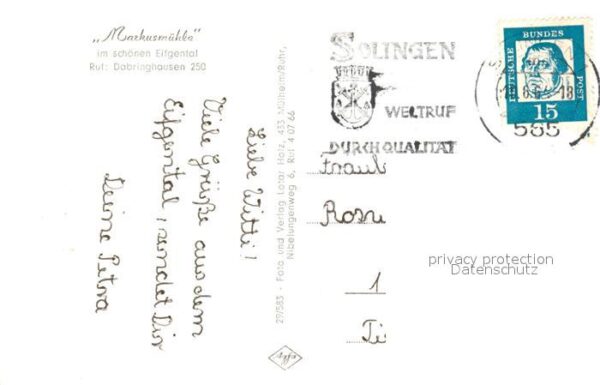 „Markusmühle"
im schönen Eifgental
Ruf: Dabringhausen 250
Liebe Witti!
Viele Grüße aus dem
Eifgental, sendet Dir
Deine Petra
29/583 - Foto und Verlag Lotar Holz, 433 Mülheim/Ruhr,
Nibelungenweg 6, Ruf 4 07 66
SOLINGEN
WELTRUF
DURCH QUALITÄT
DEUTSCHE BUNDESPOST
15
18
565
Fraul
Rosw
1
privacy protection
Datenschutz